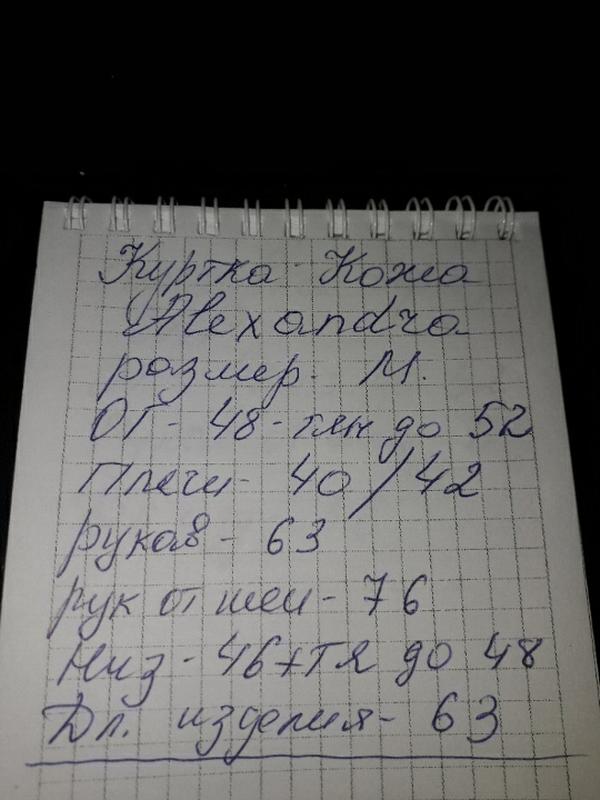 Куртка Кожа
Alexandra
размер. М.
ОГ - 48 - тян до 52
Плечи - 40 / 42
рукав - 63
рук от шеи - 76
Низ - 46 + тя до 48
Дл. изделия - 63